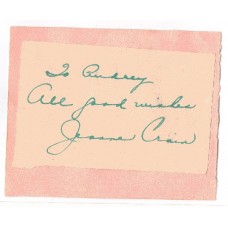 To Audrey
All good wishes
Jeanne Crain